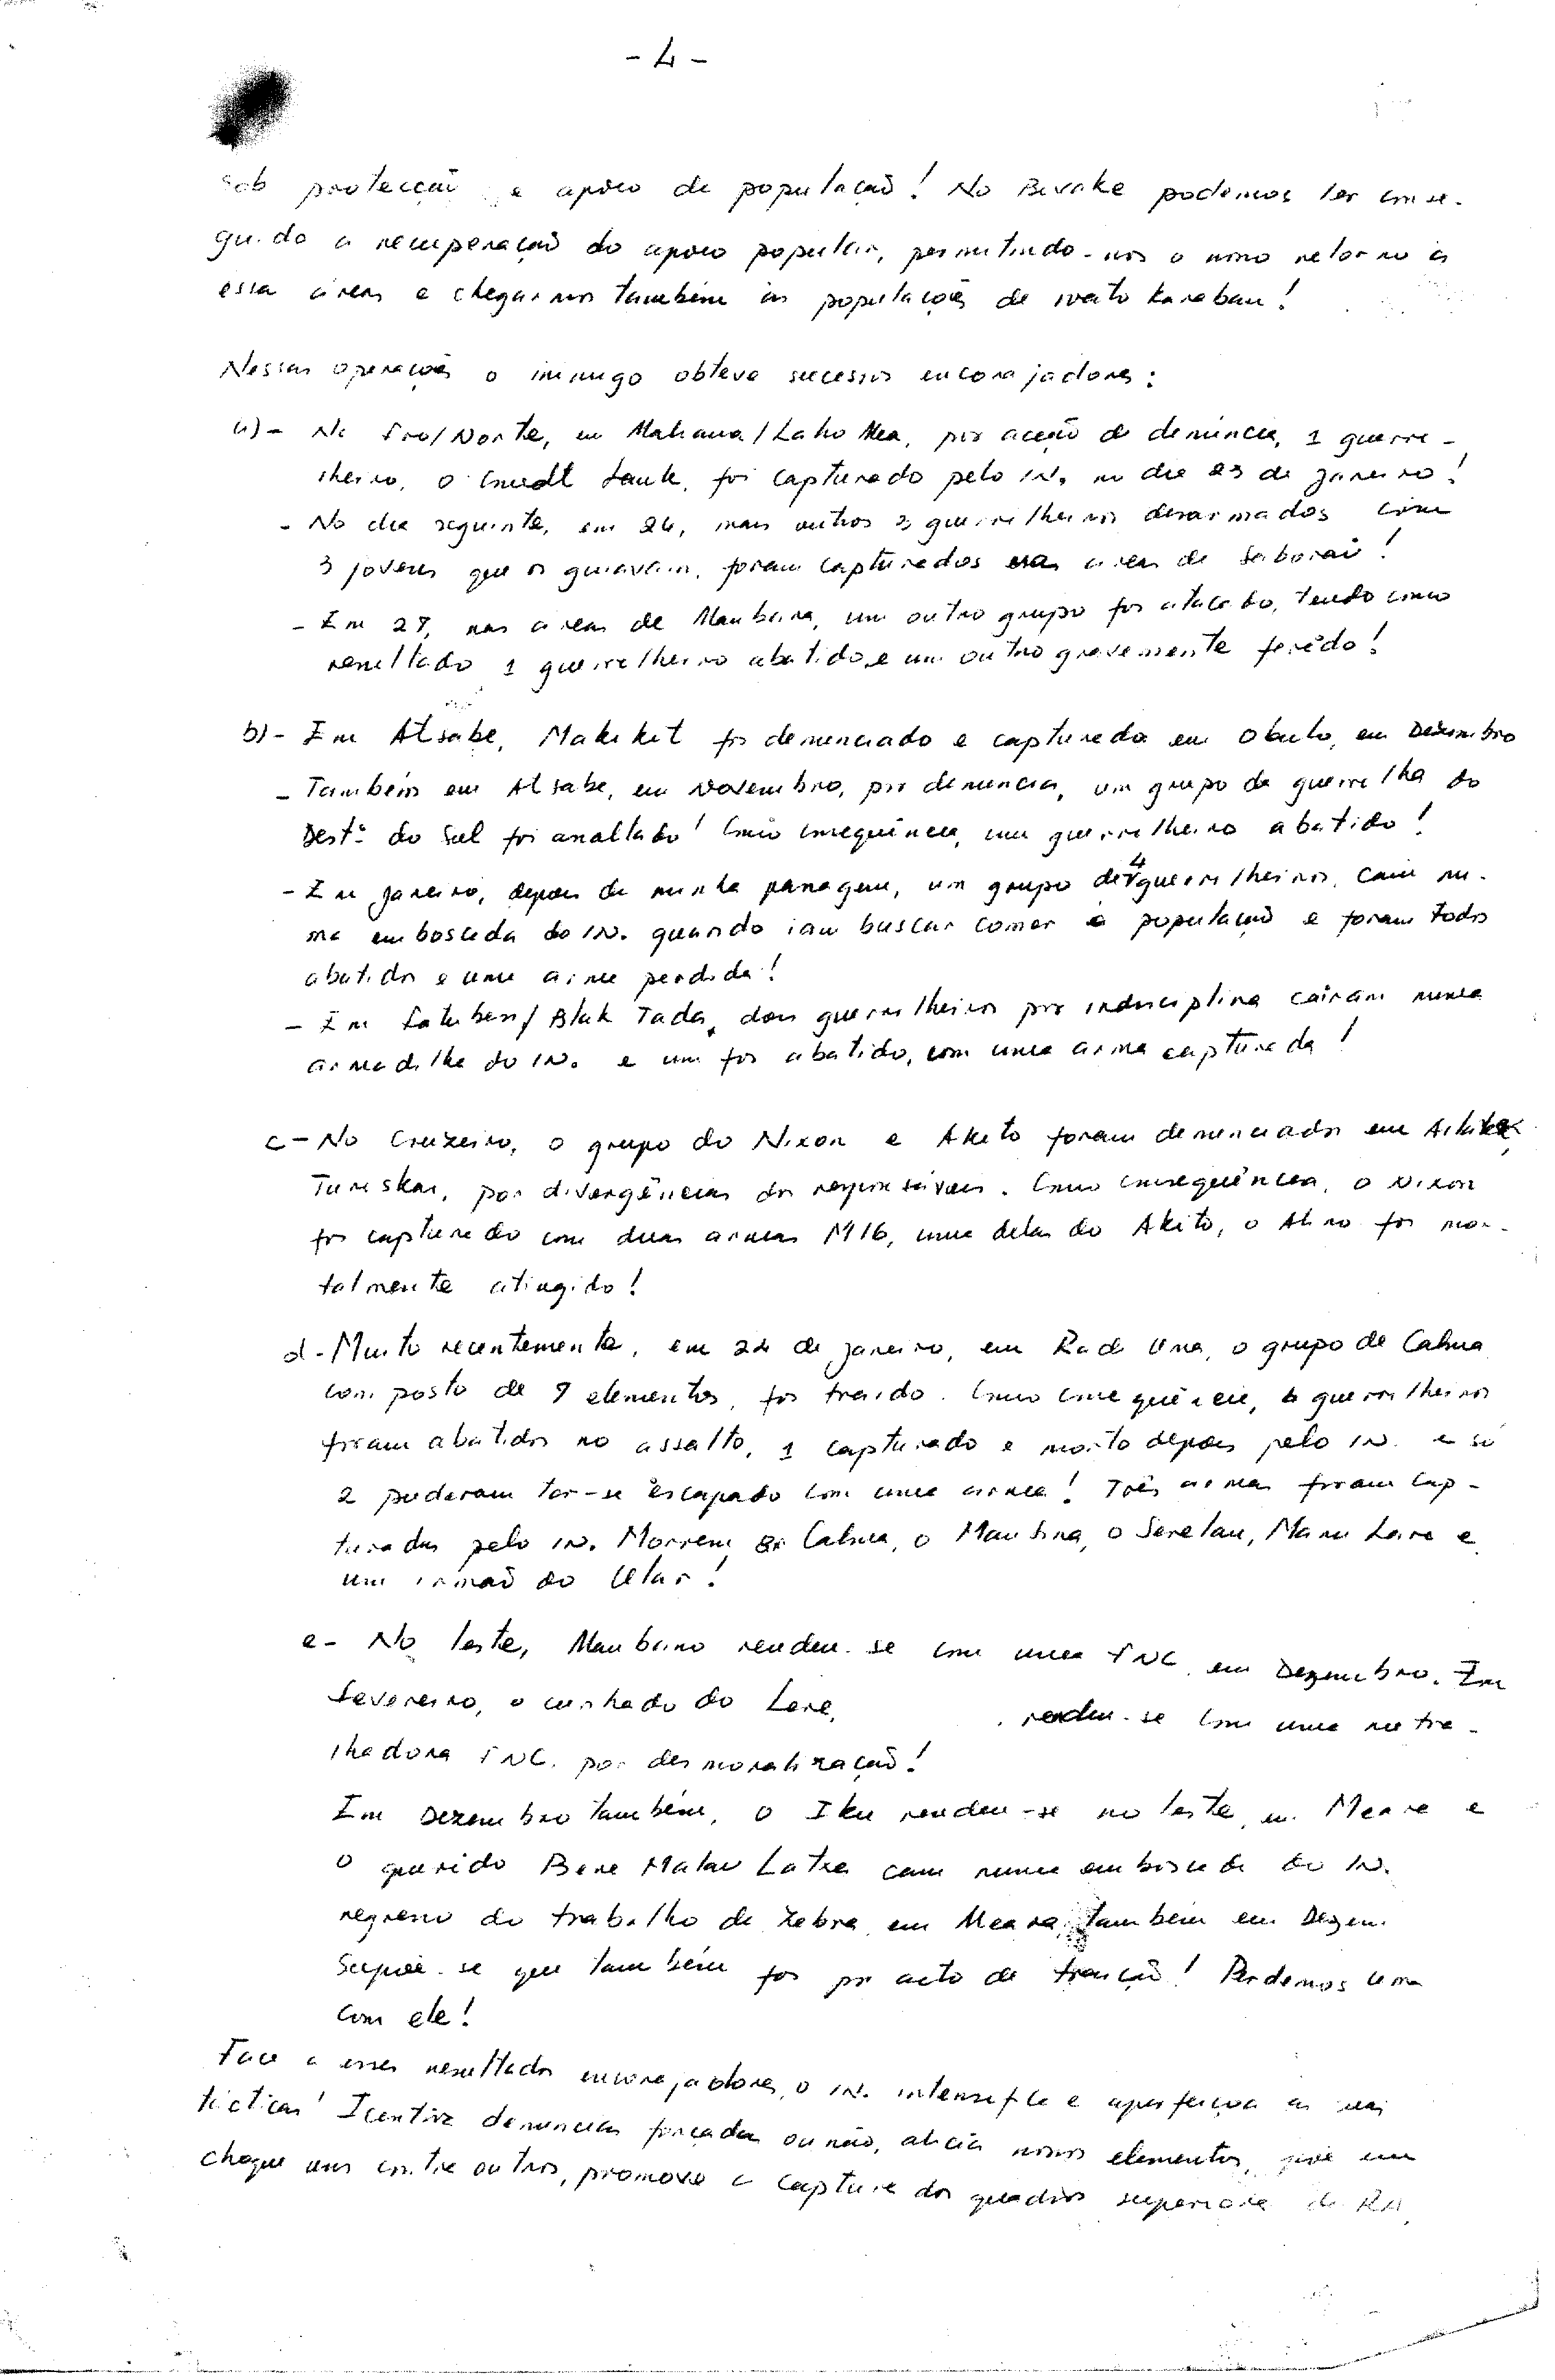 - 4 -
sob protecção e apoio da população! No Bivake podemos ter conse-
guido a recuperação do apoio popular, permitindo-nos o novo retorno à
essa área e chegarmos também às populações de Wato Karabau!
Nessas operações o inimigo obteve sucessos encorajadores:
a) - Na Fro/Norte, em Mahana/Laho Mea, por acção de denúncia, 1 guerri-
lheiro, o Cmdt Lauk, foi capturado pelo IN. no dia 23 de Janeiro!
- No dia seguinte, em 24, mais outros 3 guerrilheiros desarmados com
3 jovens que os guiavam, foram capturados nas áreas de Saboraí!
- Em 27, nas áreas de Maubara, um outro grupo foi atacado, tendo como
resultado 1 guerrilheiro abatido e um outro gravemente ferido!
b) - Em Atsabe, Makikit foi denunciado e capturado em Obulo, em Dezembro
- Também em Atsabe, em Novembro, por denúncia, um grupo da guerrilha do
Destº do Sul foi assaltado! Como consequência, um guerrilheiro abatido!
- Em Janeiro, depois da minha passagem, um grupo de 4 guerrilheiros, caiu nu-
ma emboscada do IN. quando iam buscar comer à população e foram todos
abatidos e uma arma perdida!
- Em Fatubesi/Blak Tada, dois guerrilheiros por indisciplina caíram numa
armadilha do IN. e um foi abatido, com uma arma capturada!
c - No Cruzeiro, o grupo do Nixon e Akito foram denunciados em
Turiskai, por divergências dos responsáveis. Como consequência, o Nixon
foi capturado com duas armas M16, uma delas do Akito, o Alino foi mor-
talmente atingido!
d - Muito recentemente, em 24 de Janeiro, em Railuna, o grupo de Calma
composto de 9 elementos, foi traído. Como consequência, 6 guerrilheiros
foram abatidos no assalto, 1 capturado e morto depois pelo IN. e só
2 puderam ter-se escapado com uma arma! Três armas foram cap-
turadas pelo IN. Morrem o Calma, o Mausina, o Serelau, Manu Lara e
um irmão do Ular!
e - No leste, Maubruno rendeu-se com uma FNC em Dezembro. Em
Fevereiro, o cunhado do Lere, rendeu-se com uma metra-
lhadora FNC. por desmoralização!
Em Dezembro também, o Iku rendeu-se no leste, em Meara e
o querido Bere Malae Laka caiu numa emboscada do IN.
regresso do trabalho de Zebra em Meara, também em Dezem.
Supõe-se que também foi por acto de traição! Perdemos uma
com ele!
Face a esses resultados encorajadores, o IN. intensifica e aperfeiçoa as suas
tácticas! Icentiva denúncias forçadas ou não, alicia nossos elementos, põe em
choque uns contra outros, promove a captura dos quadros superiores da RA,